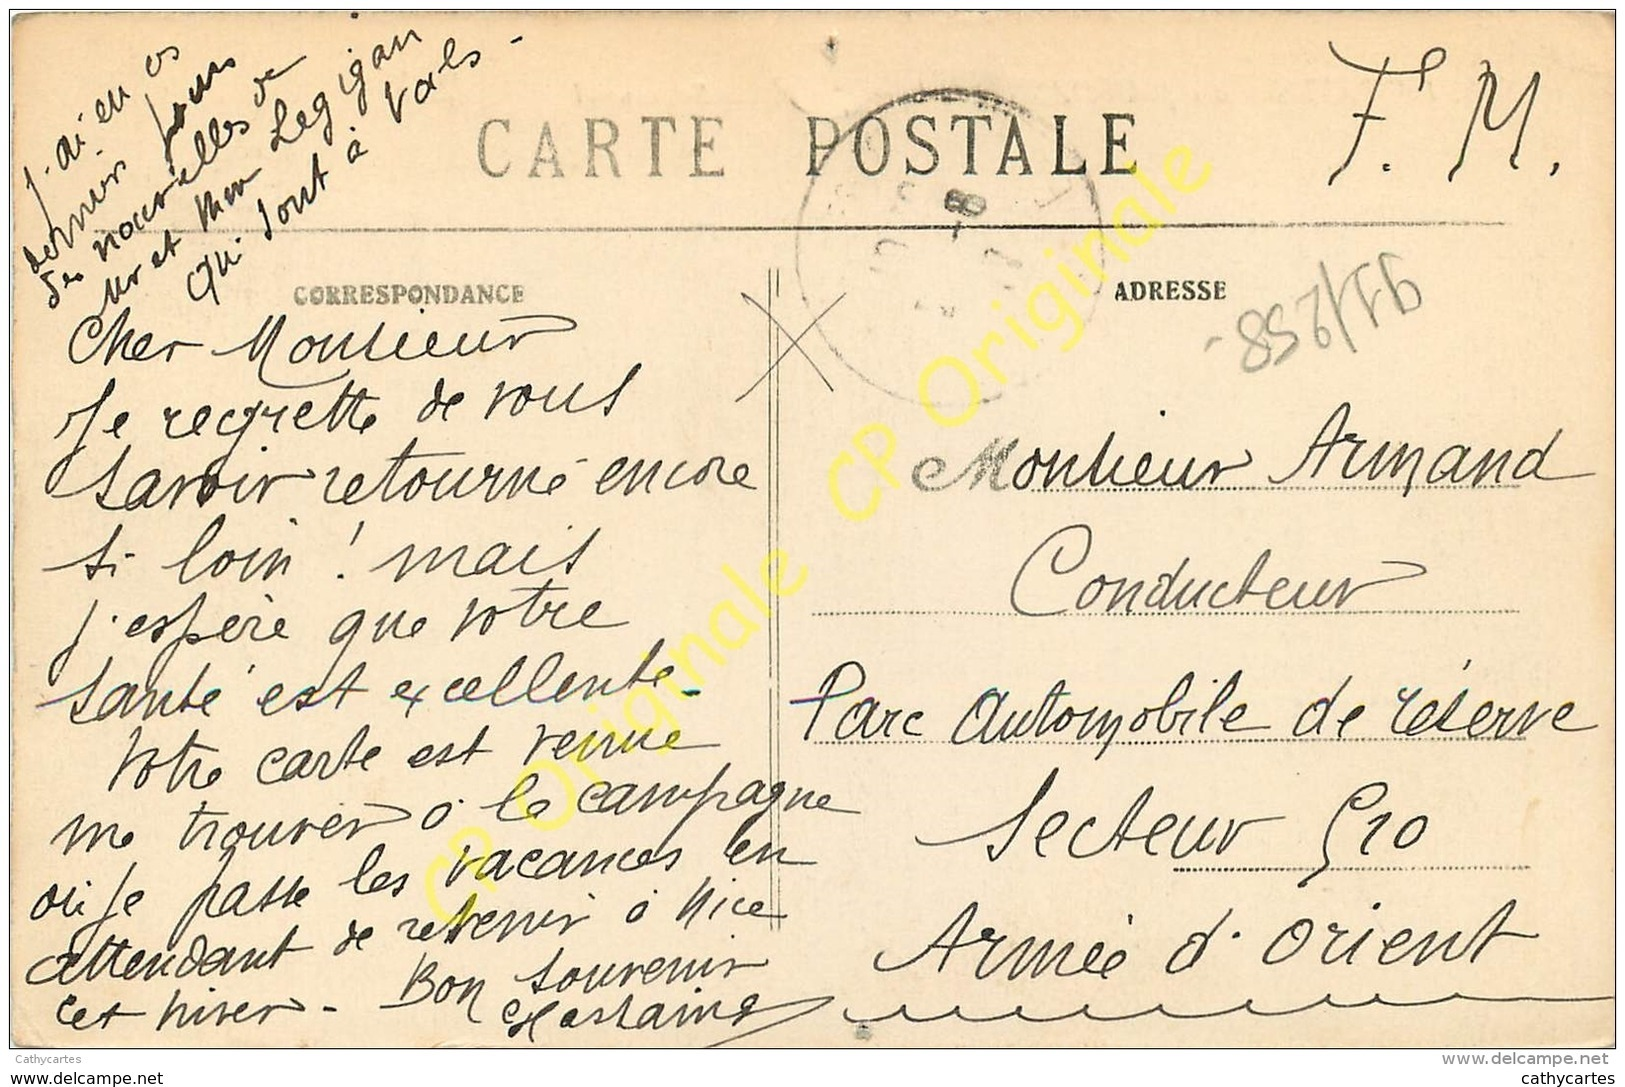 J'ai eu ces
derniers jours
des nouvelles de
Mr et Mme Legigan
qui sont à Vals -
CARTE POSTALE
F. M.
CORRESPONDANCE
ADRESSE
911/258 -
Cher Monsieur
Je regrette de vous
savoir retourné encore
si loin ! mais
j'espère que votre
santé est excellente -
Votre carte est venue
me trouver à la campagne
où je passe les vacances en
attendant de retenir à Nice
cet hiver - Bon souvenir
Monsieur Armand
Conducteur
Parc Automobile de réserve
Secteur 510
Armée d'Orient
CP Originale CP Originale
Cathycartes
www.delcampe.net
cathycartes
cathycartes